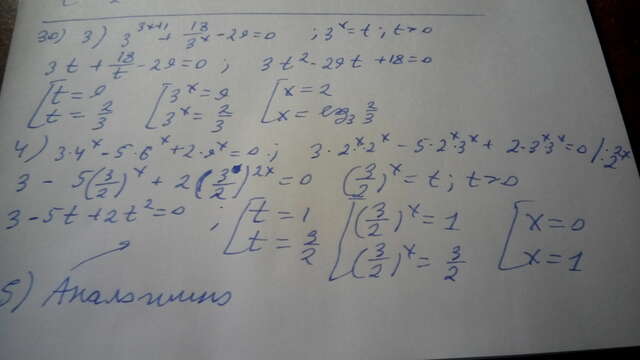 30) 3) 3^{3x+1} + 18/3^x - 29 = 0 ; 3^x = t ; t>0
3t + 18/t - 29 = 0 ; 3t² - 29t + 18 = 0
[t = 9 [3^x = 9 [x = 2
[t = 2/3 [3^x = 2/3 [x = log₃ 2/3
4) 3·4^x - 5·6^x + 2·9^x = 0 ; 3·2^x·2^x - 5·2^x·3^x + 2·3^x3^x = 0 /: 2^{2x}
3 - 5(3/2)^x + 2(3/2)^{2x} = 0 (3/2)^x = t ; t>0
3 - 5t + 2t² = 0 ; [t = 1 [(3/2)^x = 1 [x = 0
[t = 3/2 [(3/2)^x = 3/2 [x = 1
5) Аналогично